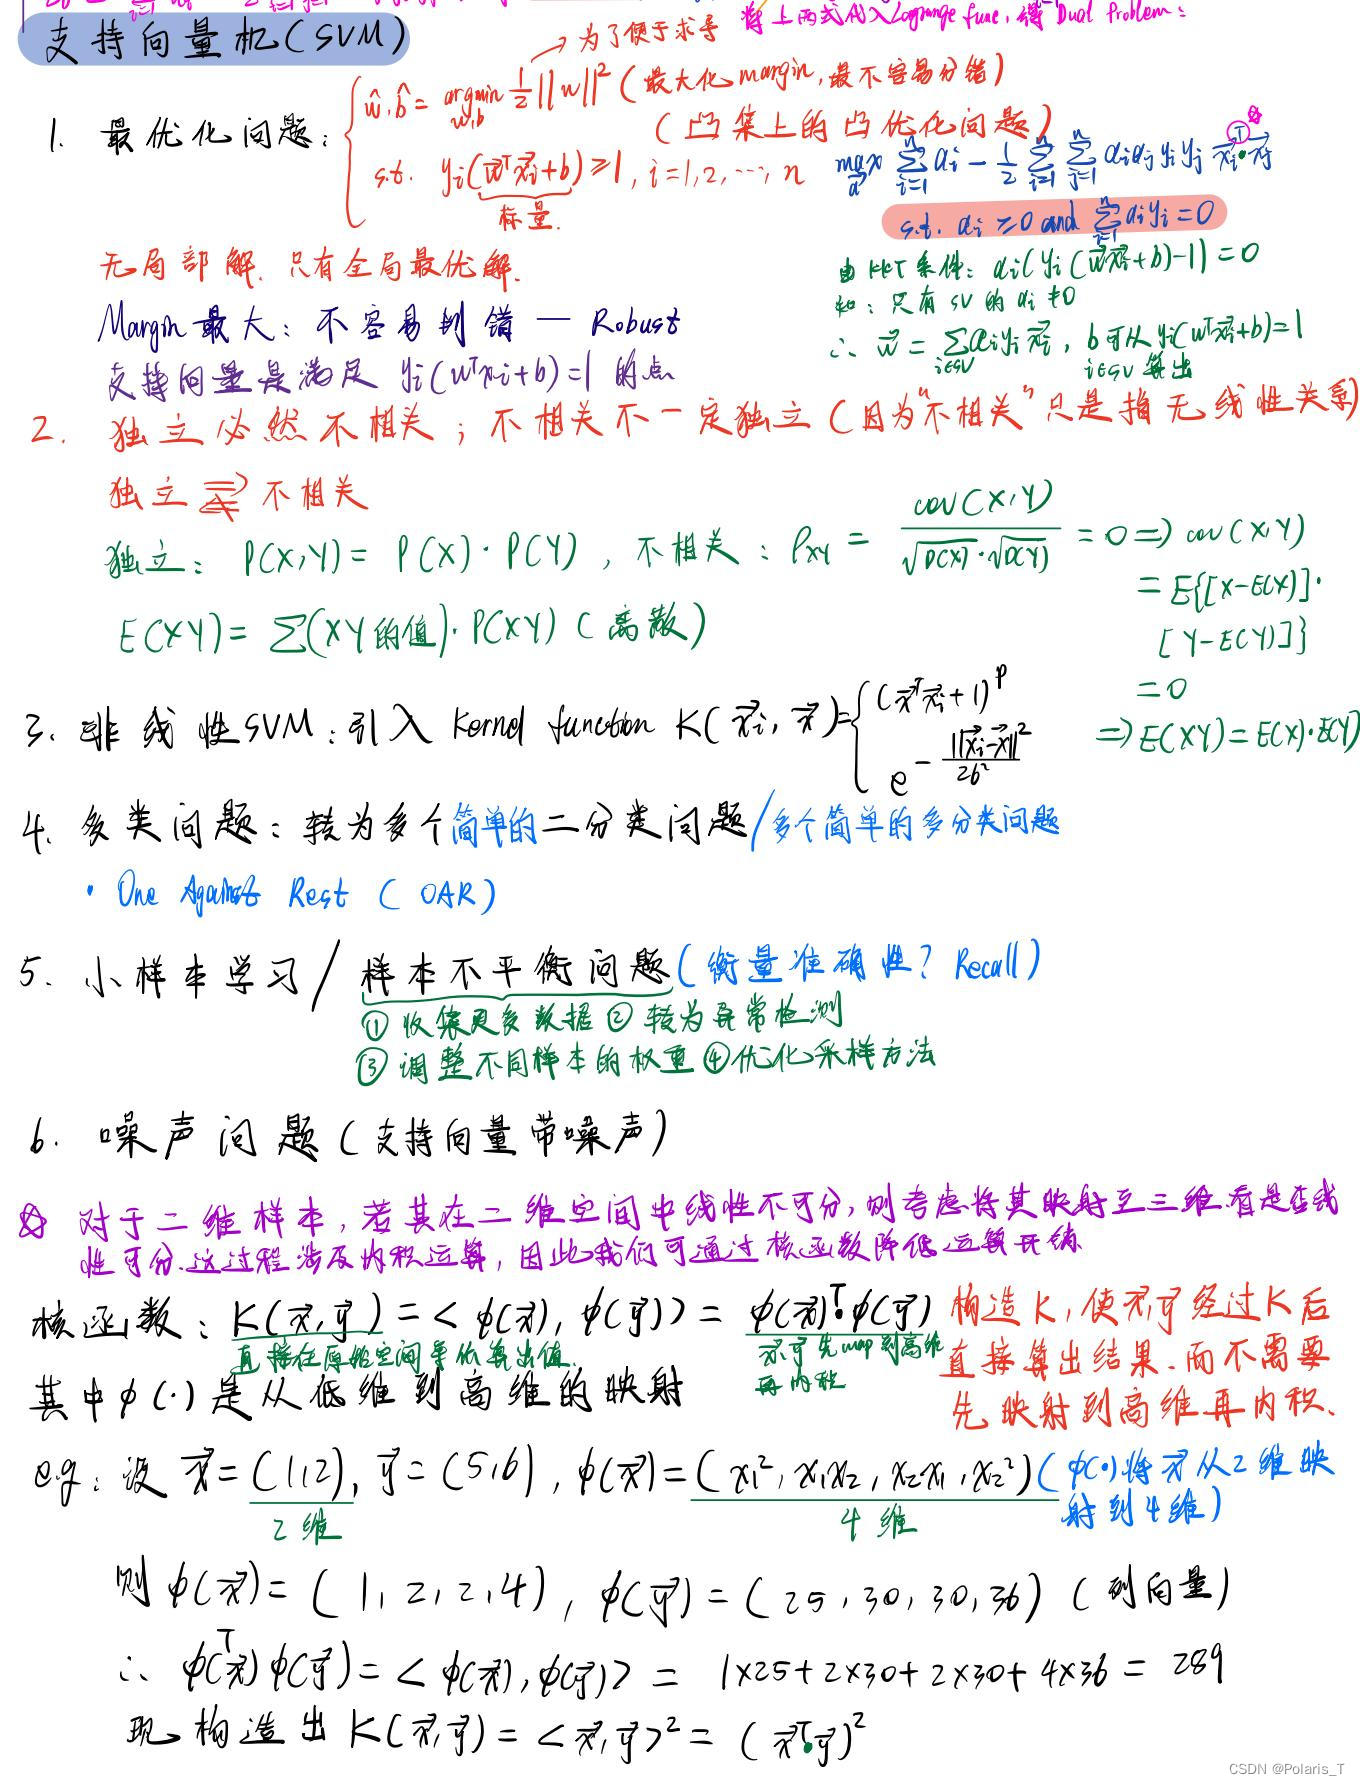 将上两式代入Lagrange func, 得 Dual Problem:
支持向量机(SVM)
→ 为了便于求导
1. 最优化问题: { ŵ, b̂ = argmin_{w,b} 1/2 ||w||² (最大化margin, 最不容易分错)
(凸集上的凸优化问题)
s.t. yᵢ(w⃗ᵀx⃗ᵢ+b) ≥ 1, i=1,2,…,n
标量.
max_α Σ_{i=1}^n αᵢ - 1/2 Σ_{i=1}^n Σ_{j=1}^n αᵢαⱼyᵢyⱼ x⃗ᵢᵀ·x⃗ⱼ
s.t. αᵢ ≥ 0 and Σ_{i=1}^n αᵢyᵢ = 0
无局部解. 只有全局最优解.
由 KKT 条件: αᵢ(yᵢ(w⃗x⃗ᵢ+b)-1) = 0
知: 只有 SV 的 αᵢ ≠ 0
Margin 最大: 不容易判错 — Robust
∴ w⃗ = Σ_{i∈SV} αᵢyᵢx⃗ᵢ, b可从 yᵢ(wᵀx⃗ᵢ+b)=1
i∈SV 算出
支持向量是满足 yᵢ(wᵀxᵢ+b)=1 的点
2. 独立必然不相关; 不相关不一定独立 (因为“不相关”只是指无线性关系)
独立 ⇄ 不相关
独立: P(X,Y) = P(X)·P(Y), 不相关: ρ_XY = cov(X,Y) / √D(X)·√D(Y) = 0 ⇒ cov(X,Y)
= E{[X-E(X)]·
E(XY) = Σ(XY的值)·P(XY) (离散)
[Y-E(Y)]}
= 0
⇒ E(XY) = E(X)·E(Y)
3. 非线性SVM: 引入 Kernel function K(x⃗ᵢ, x⃗) = { (x⃗ᵀx⃗ᵢ+1)^p
e^{-||x⃗ᵢ-x⃗||²/2σ²}
4. 多类问题: 转为多个简单的二分类问题/多个简单的多分类问题
· One Against Rest (OAR)
5. 小样本学习 / 样本不平衡问题 (衡量准确性? Recall)
① 收集更多数据 ② 转为异常检测
③ 调整不同样本的权重 ④优化采样方法
6. 噪声问题 (支持向量带噪声)
对于二维样本, 若其在二维空间中线性不可分, 则考虑将其映射至三维看是否线
性可分. 这过程涉及内积运算, 因此我们可通过核函数降低运算开销
核函数: K(x⃗, y⃗) = <φ(x⃗), φ(y⃗)> = φ(x⃗)ᵀ·φ(y⃗)
直接在原始空间里做算出值.
不可先map到高维
再内积
构造 K, 使x⃗,y⃗ 经过K后
直接算出结果. 而不需要
先映射到高维再内积.
其中 φ(·) 是从低维到高维的映射
e.g: 设 x⃗ = (1,2), y⃗ = (5,6), φ(x⃗) = (x₁², x₁x₂, x₂x₁, x₂²) (φ(·)将 x⃗ 从2维映
射到4维)
2维
4维
则 φ(x⃗) = (1,2,2,4), φ(y⃗) = (25,30,30,36) (列向量)
∴ φ(x⃗)ᵀφ(y⃗) = <φ(x⃗), φ(y⃗)> = 1×25+2×30+2×30+4×36 = 289
现构造出 K(x⃗,y⃗) = <x⃗,y⃗>² = (x⃗ᵀ·y⃗)²
CSDN @Polaris_T